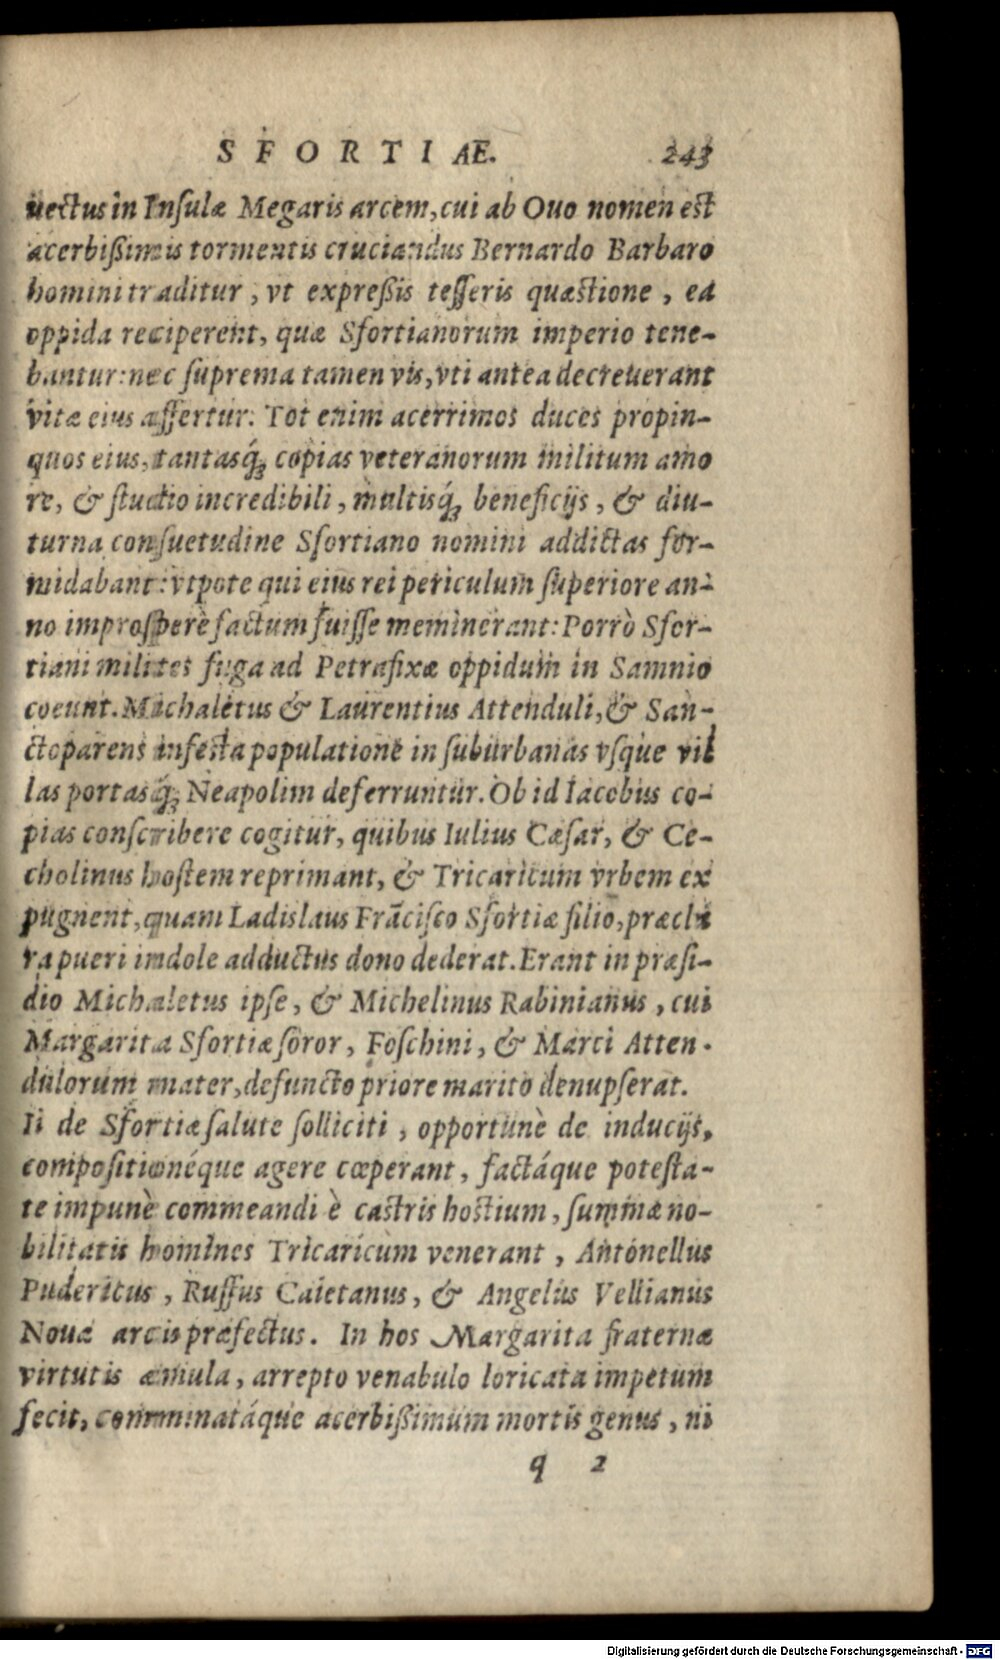 SFORTIAE. 243
uectus in Insulæ Megaris arcem, cui ab Ouo nomen est
acerbißimis tormentis cruciandus Bernardo Barbaro
homini traditur, vt expreßis tesseris quæstione, ea
oppida reciperent, quæ Sfortianorum imperio tene-
bantur: nec suprema tamen vis, vti antea decreuerant
vitæ eius affertur: Tot enim acerrimos duces propin-
quos eius, tantasq́; copias veteranorum militum amo
re, & studio incredibili, multisq́; beneficijs, & diu-
turna consuetudine Sfortiano nomini addictas for-
midabant: vtpote qui eius rei periculum superiore an-
no improsperè factum fuisse meminerant: Porrò Sfor-
tiani milites fuga ad Petrafixæ oppidum in Samnio
coeunt. Michaletus & Laurentius Attenduli, & San-
ctoparens infesta populatione in suburbanas vsque vil
las portasq́; Neapolim deferruntur. Ob id Iacobus co-
pias conscribere cogitur, quibus Iulius Cæsar, & Ce-
cholinus hostem reprimant, & Tricaricum vrbem ex
pugnent, quam Ladislaus Frãcisco Sfortiæ filio, præcla
ra pueri indole adductus dono dederat. Erant in præsi-
dio Michaletus ipse, & Michelinus Rabinianus, cui
Margarita Sfortiæ soror, Foschini, & Marci Atten-
dulorum mater, defuncto priore marito denupserat.
Ii de Sfortiæ salute solliciti, opportunè de inducijs,
compositionéque agere cœperant, factáque potesta-
te impunè commeandi è castris hostium, summæ no-
bilitatis homines Tricaricum venerant, Antonellus
Pudericus, Ruffus Caietanus, & Angelus Vellianus
Nouæ arcis præfectus. In hos Margarita fraternæ
virtutis æmula, arrepto venabulo loricata impetum
fecit, comminatáque acerbißimum mortis genus, ni
q 2
Digitalisierung gefördert durch die Deutsche Forschungsgemeinschaft - DFG